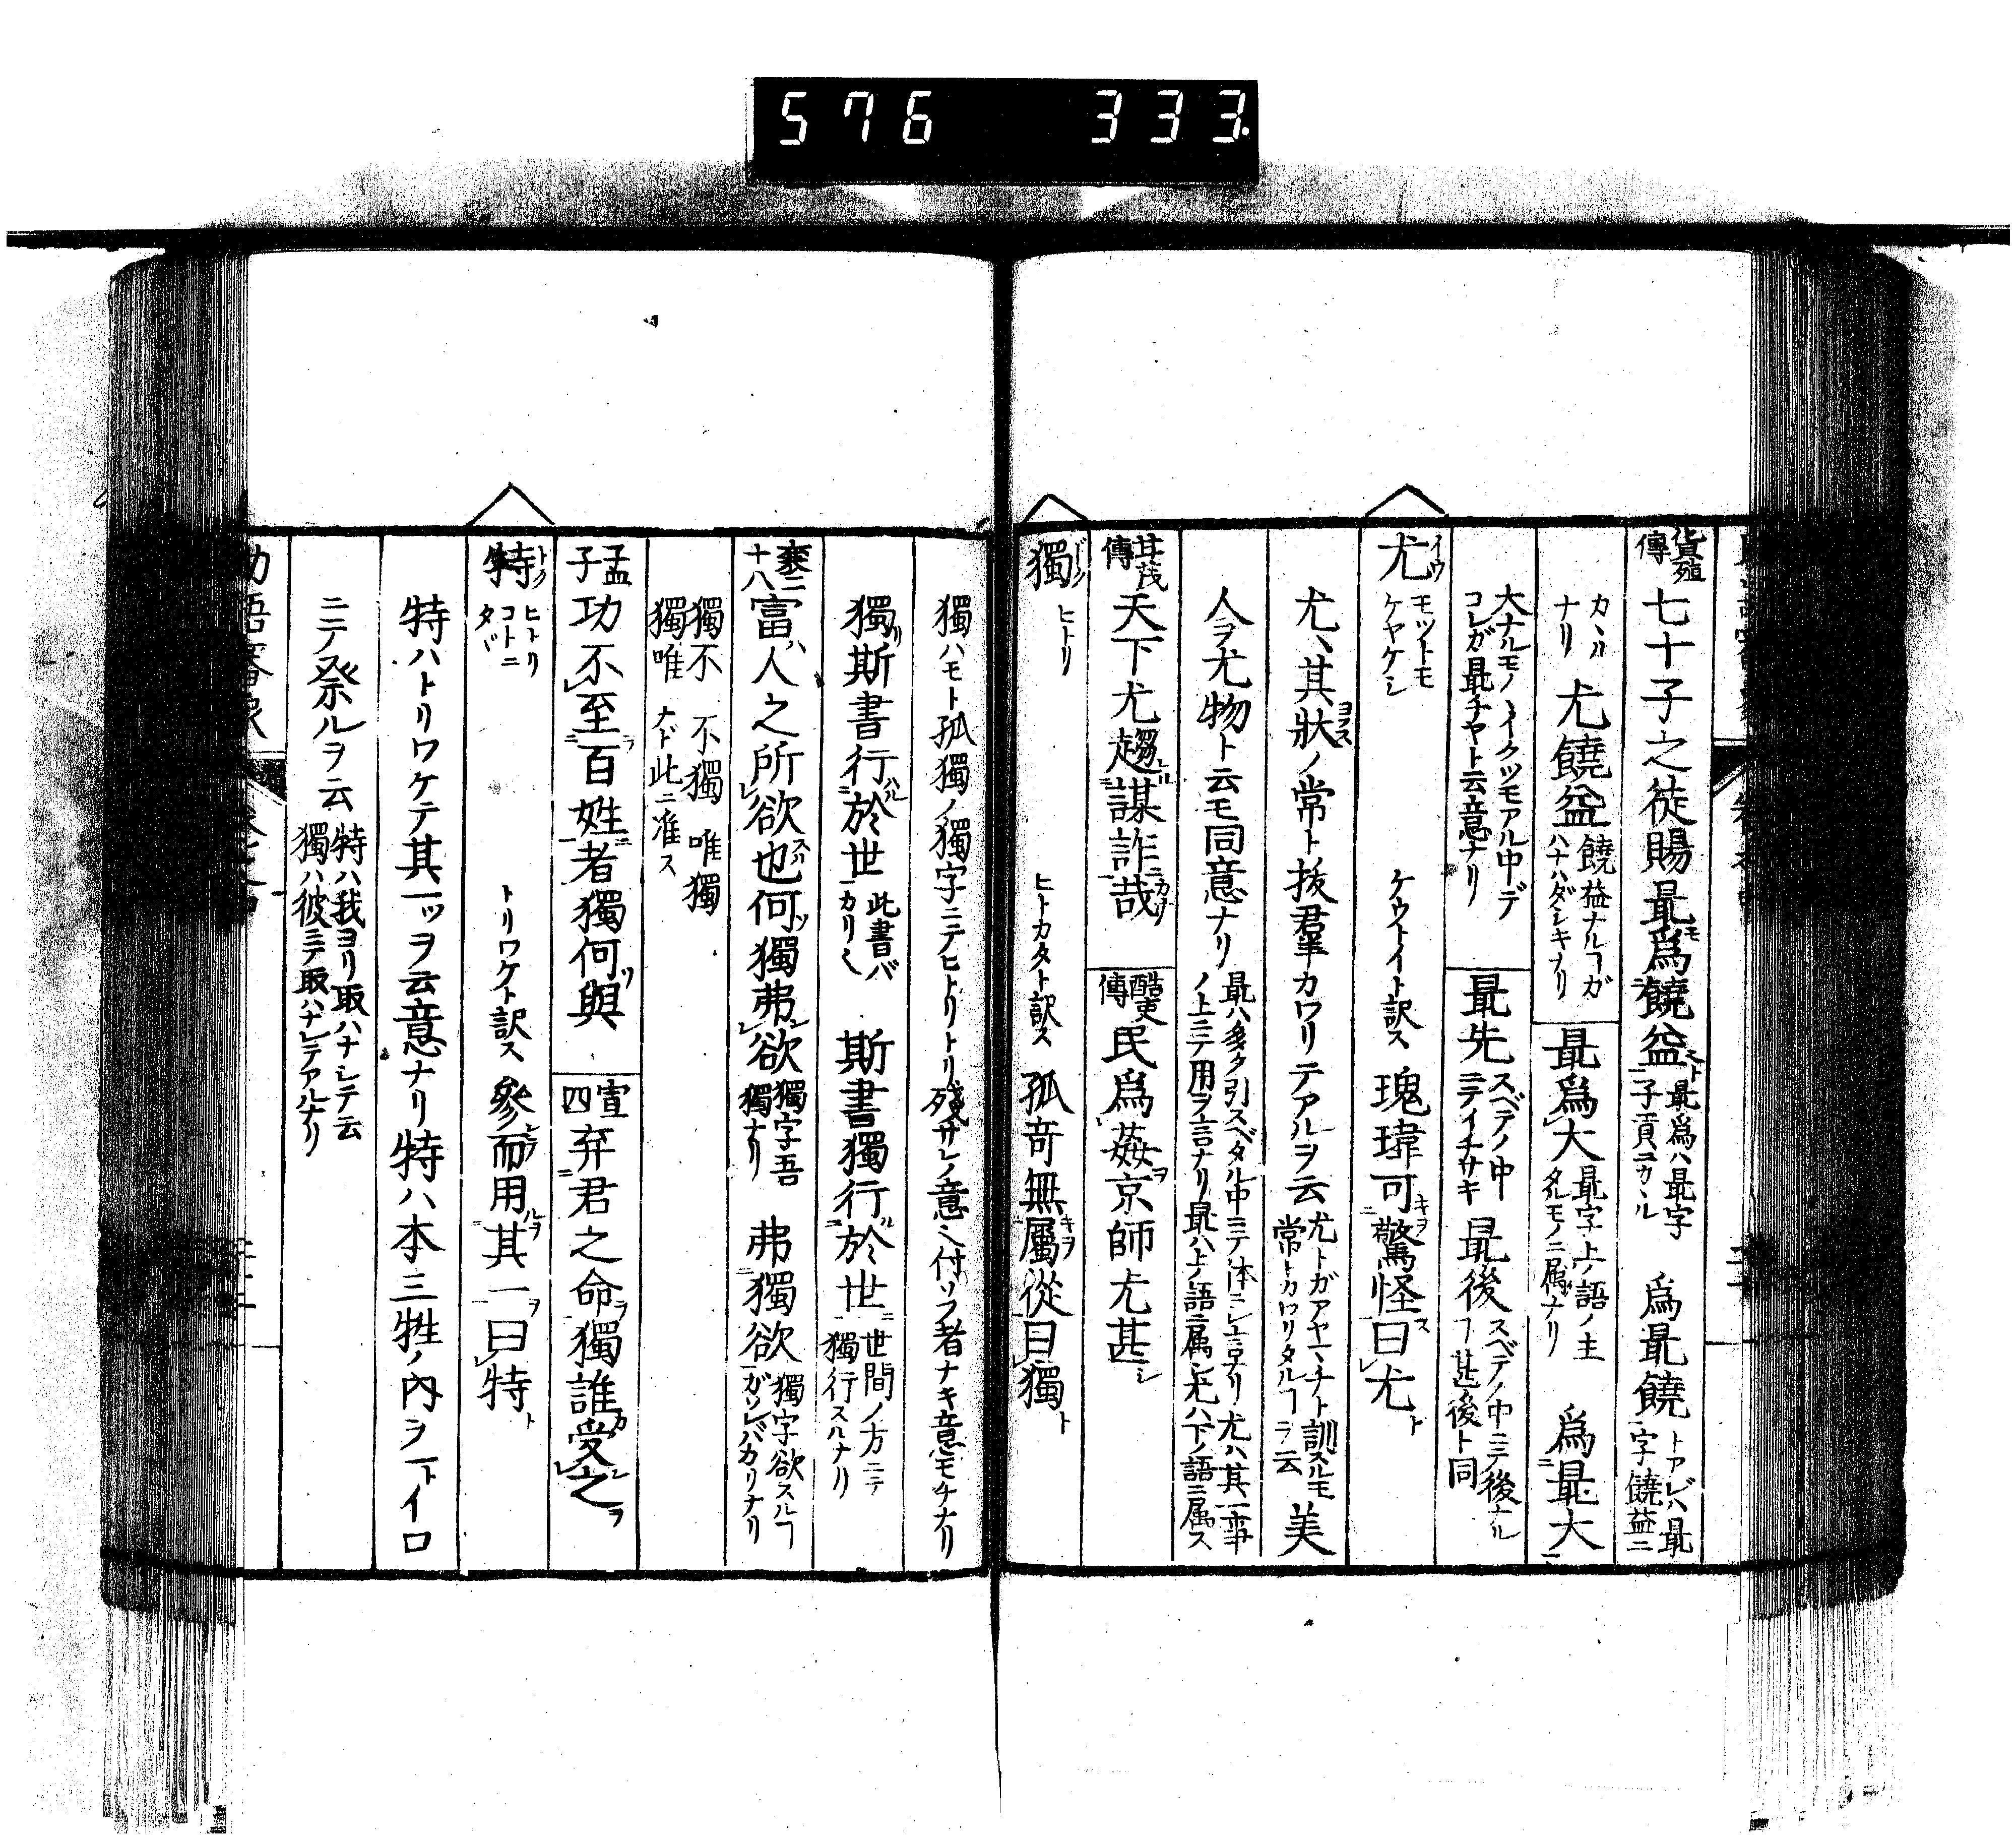 576 333.
貨殖傳 七十子之徒賜最爲饒益 最爲ハ最字子貢ニカヽル 爲最饒 トアレハ最一字饒益ニ
カヽルナリ 尤饒益 饒益ナルヿガハナハダシキナリ 最爲大 最字上ノ語ノ主タルモノニ属ナリ 爲最大
大ナルモノヽイクツモアル中デコレガ最チャト云意ナリ 最先 スベテノ中ニテイチサキ 最後 スベテノ中ニテ後ナルヿ甚後ト同
尤 イウ モットモ ケヤケシ ケウトイト訳ス 瑰瑋可驚怪曰尤
尤ハ其狀ノ常ト抜羣カワリテアルヲ云 尤トガアヤマチト訓スルモ常トカワリタルヿヲ云 美
人ヲ尤物ト云モ同意ナリ 最ハ多ク引スベタル中ニテ体ニシ言ナリ尤ハ其一事ノ上ニテ用ヲ言ナリ最ハ上ノ語ニ属シ尤ハ下ノ語ニ属ス
甘茂傳 天下尤趨謀詐哉 酷吏傳 民爲姦京師尤甚シ
獨 ドク ヒトリ ヒトカタト訳ス 孤竒無屬從曰獨
獨ハモト孤獨ノ獨字ニテヒトリトリ殘サレノ意ニ付ソフ者ナキ意モチナリ
獨斯書行於世 此書バカリミ 斯書獨行於世 世間ノ方ニテ獨行スルナリ
襄二十八 富人之所欲也何獨弗欲 獨字吾獨ナリ 弗獨欲 獨字欲スルヿガソレバカリナリ
獨不 不獨 唯獨 獨唯 ナド此ニ准ス
孟子 功不至百姓者獨何與 宣四 弃君之命獨誰受之
特 トク ヒトリ コトニ タヾ トリワケト訳ス 參而用其一曰特
特ハトリワケテ其一ッヲ云意ナリ特ハ本三牲ノ内ヲ一トイロ
ニテ祭ルヲ云 特ハ我ヨリ取ハナシテ云獨ハ彼ニテ取ハナレテアルナリ